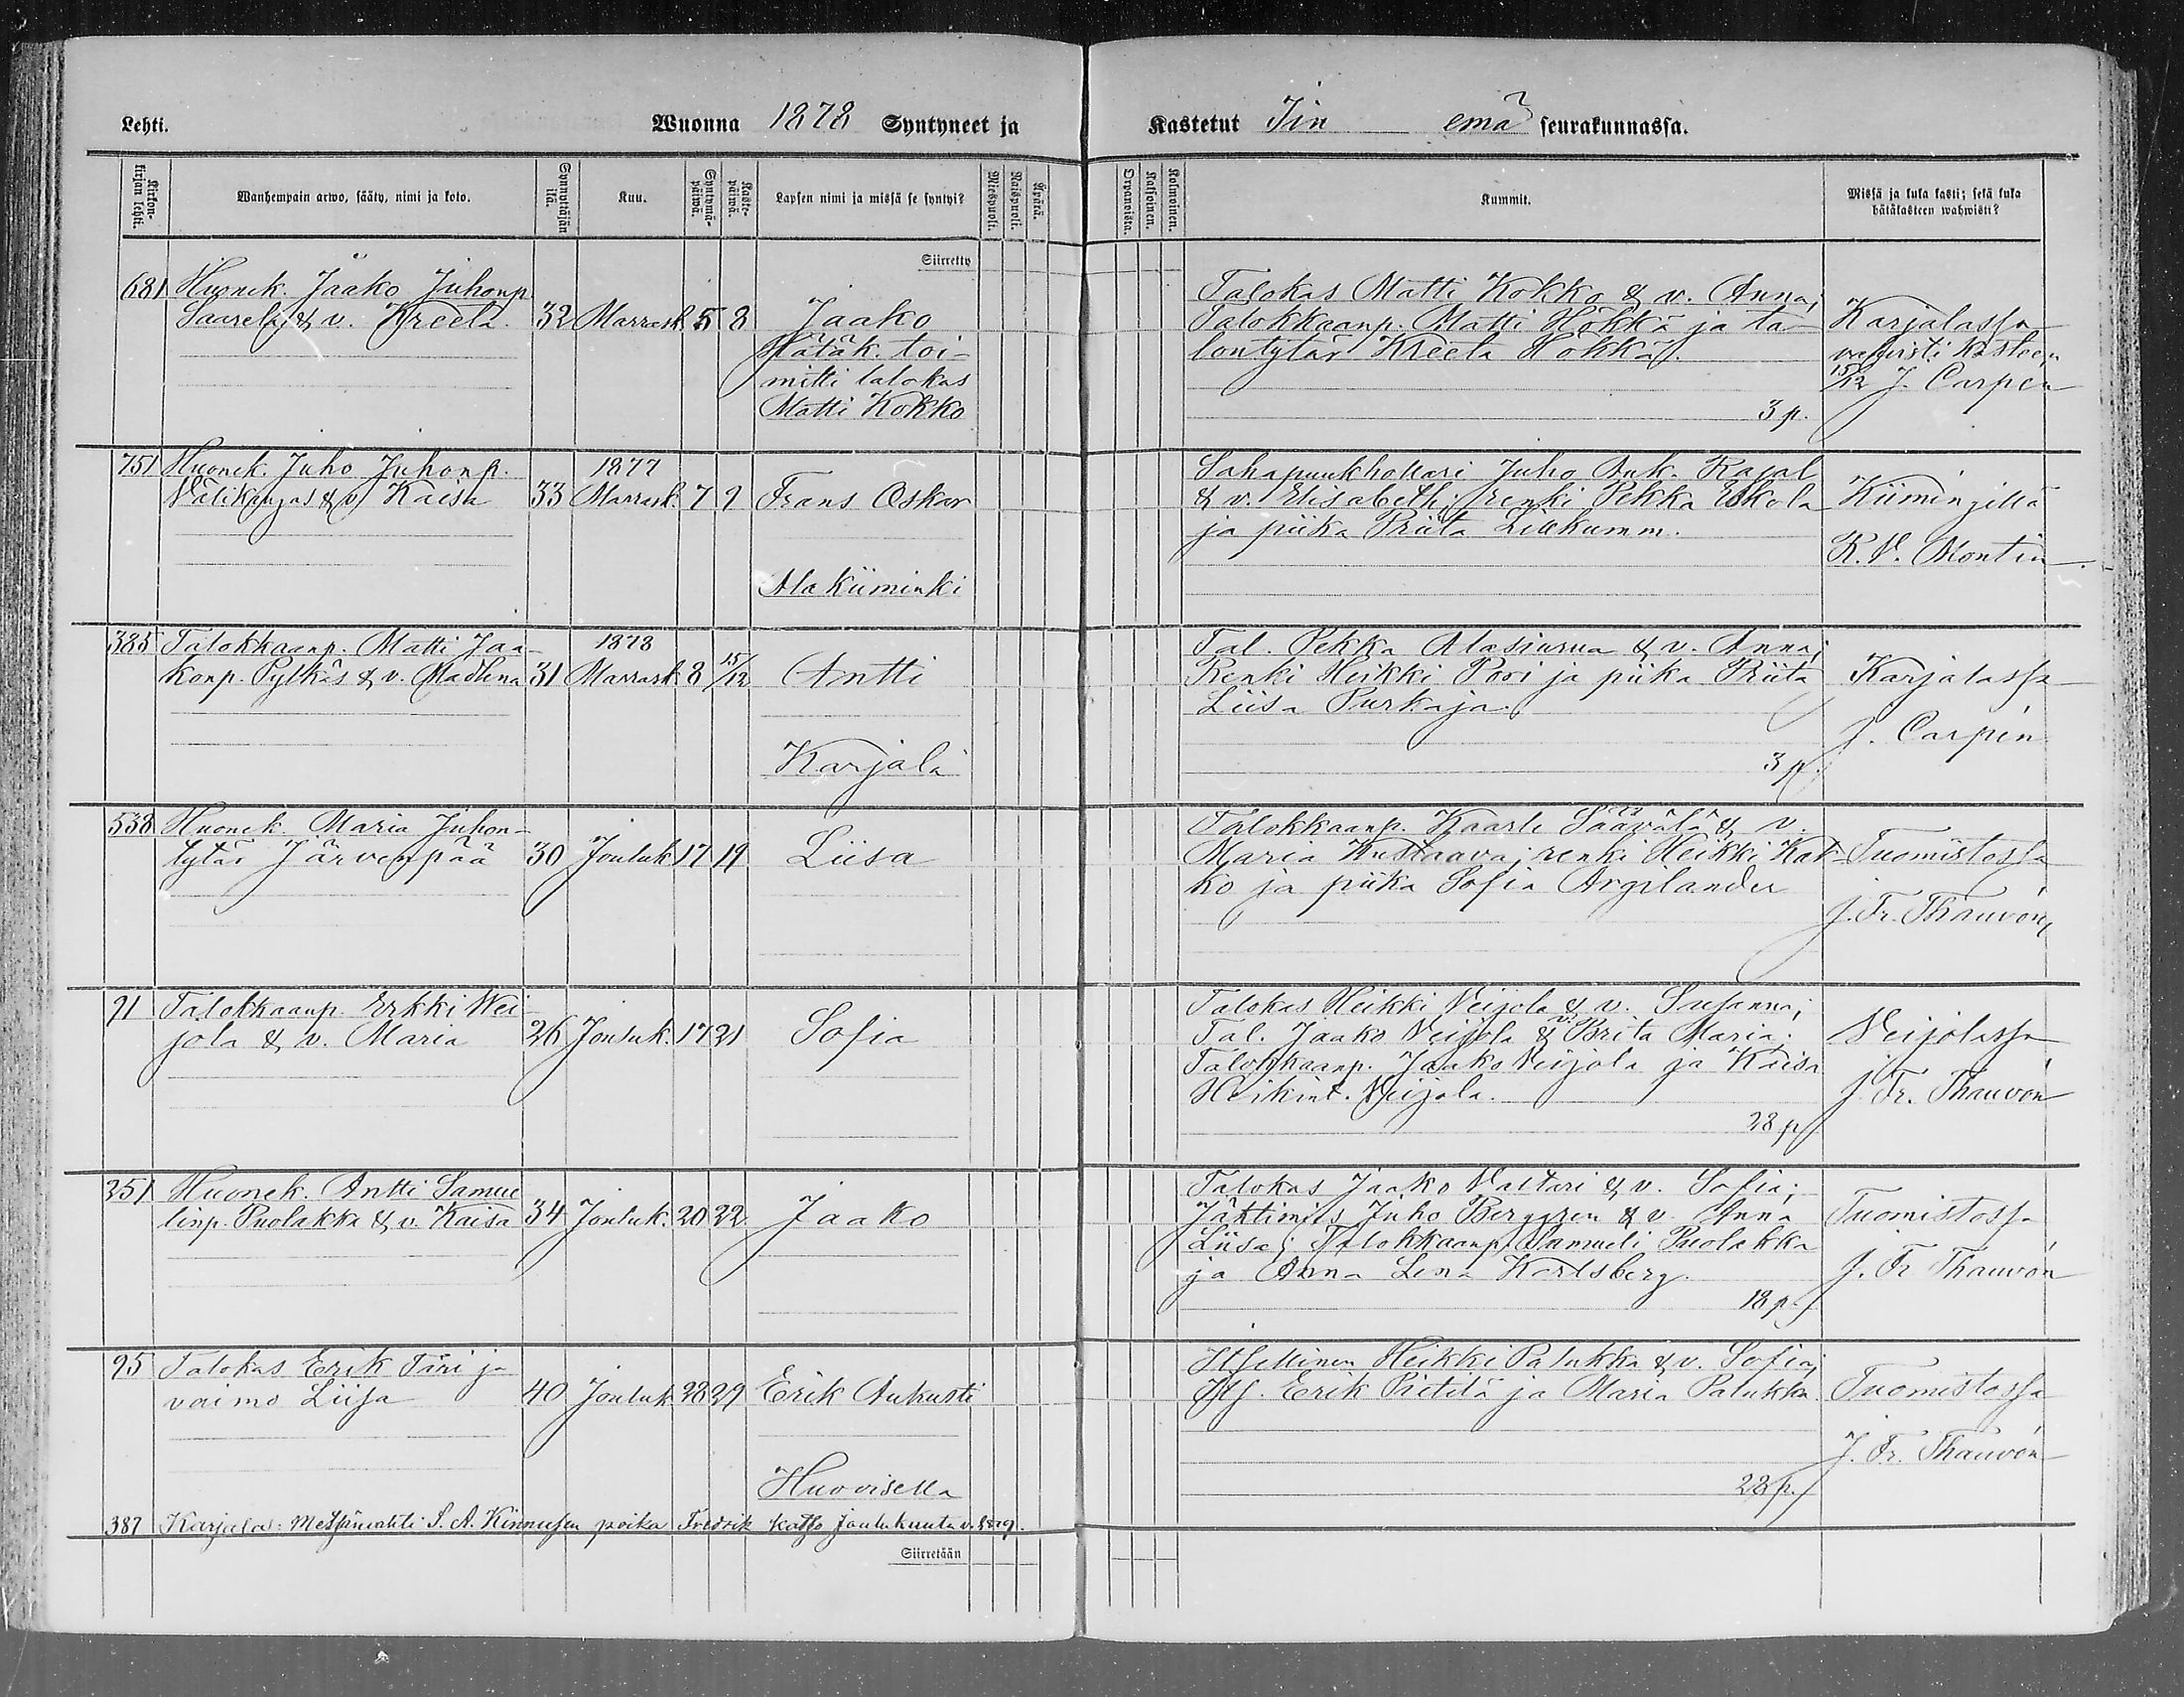 Lehti.
Wuonna 1878 Syntyneet ja
Kastetut Iin emä seurakunnassa.
Kirkon-kirjan lehti.
Wanhempain arwo, sääty, nimi ja koto.
Synnyttäjän ikä.
Kuu.
Syntymä-päiwä.
Kaste-päiwä.
Lapsen nimi ja missä se syntyi?
Mieskpuoli.
Naispuoli.
Äpärä.
Orpanoista.
Kaksoinen.
Kolmoinen.
Kummit.
Missä ja kuka kasti; sekä kuka
hätäkasteen wahwisti?
Siirretty
681 Huonek. Jaako Juhonp.
Saarela & v. Kreeta. 32 Marrask. 5 8 Jaako
Hätäk. toi-
mitti talokas
Matti Kokko
Talokas Matti Kokko & v. Anna;
Talokkaanp. Matti Hökkä ja ta-
lontytär Kreeta Hökkä.
3 p.
Karjalassa
vahvisti kasteen
15/12 J. Carpén
751 Huonek. Juho Juhonp. 1877
Välikangas & v. Kaisa 33 Marrask. 7 9 Frans Oskar
Alakiiminki
Sahapuukhollari Juho Ank. Rajal
& v. Elisabeth; renki Pekka Eskola
ja piika Priita Liekumm.
Kiimingillä
K. V. Montin.
385 Talokkaanp. Matti Jaa- 1878
konp. Pylkäs & v. Madlena 31 Marrask. 8 15/12 Antti
Karjala
Tal. Pekka Alasiurua & v. Anna;
Renki Heikki Pori ja piika Priita
Liisa Purkaja.
3 p.
Karjalassa
J. Carpén
538 Huonek. Maria Juhon-
tytär Järvenpää 30 Jouluk. 17 19 Liisa
Talokkaanp. Kaarle Säävälä & v.
Maria Kustaava; renki Heikki Kak-
ko ja piika Sofia Argilander
Tuomistossa
J. Fr. Thauvón
91 Talokkaanp. Erkki Wei-
jola & v. Maria 26 Jouluk. 17 21 Sofia
Talokas Heikki Veijola & v. Susanna;
Tal. Jaako Veijola & v. Brita Maria;
Talokkaanp. Jaako Veijola ja Kaisa
Heikint. Veijola.
28 p.
Veijolassa
J. Fr. Thauvón
251 Huonek. Antti Samue
linp. Puolakka & v. Kaisa 34 Jouluk. 20 22 Jaako
Talokas Jaako Valtari & v. Sofia;
Jähtimies Juho Berggren & v. Anna
Liisa; Talokkaanp. Samueli Puolakka
ja Anna Lena Karlsberg.
18 p.
Tuomistossa
J. Fr Thauvón
95 Talokas Erik Tiiri ja
vaimo Liisa 40 Jouluk. 28 29 Erik Aukusti
Huovisella
Itsellinen Heikki Palukka & v. Sofia;
Its. Erik Pietilä ja Maria Palukka.
28 p.
Tuomistossa
J. Fr. Thauvón
387 Karjala: Metsänvahti S. A. Kinnusen poika Fredrik katso Joulukuuta v. 1879.
Siirretään